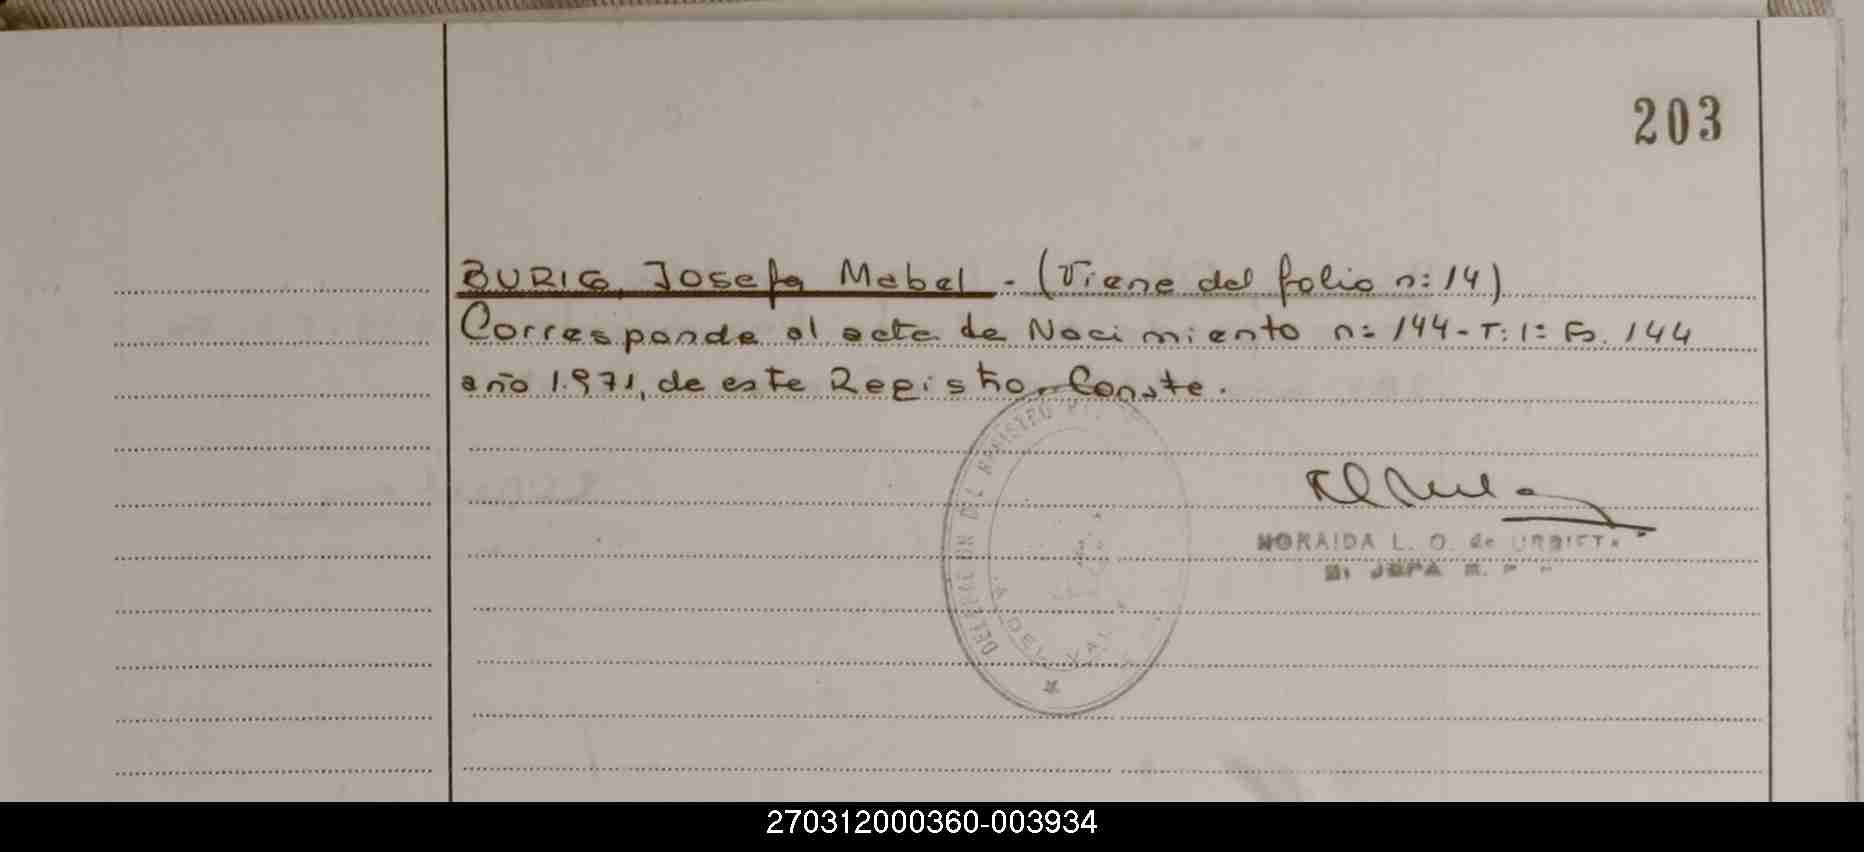 203
BURIG, Josefa Mabel - (Viene del folio n: 14)
Corresponde al acta de Nacimiento n= 144 - T: 1= Fo. 144
año 1.971, de este Registro. Conste.
NORAIDA L. O. de URBIETA
JEFA
270312000360-003934